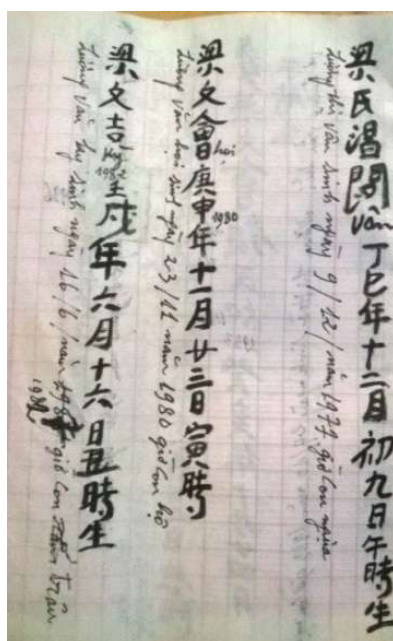 梁氏 vân 丁巳年十二月初九日午時生
Lường thị vân sinh ngày 9/12/năm 1977. giờ con ngựa
梁文會 hội 庚申年 1980 十一月廿三日寅時
Lường văn hội sinh ngày 23/11 năm 1980 giờ con hổ
梁文吉 1982 壬戌年六月十六日丑時生
Lường văn sinh ngày 16/6/năm 1982 giờ con trâu